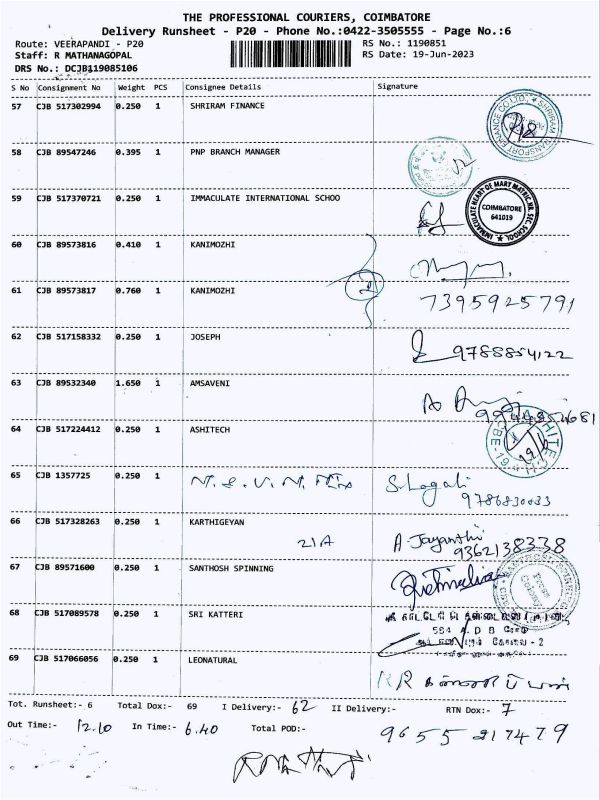 THE PROFESSIONAL COURIERS, COIMBATORE
Delivery Runsheet - P20 - Phone No.:0422-3505555 - Page No.:6
Route: VEERAPANDI - P20
RS No.: 1190851
Staff: R MATHANAGOPAL
RS Date: 19-Jun-2023
DRS No.: DCJB119085106
S No Consignment No Weight PCS Consignee Details Signature
57 CJB 517302994 0.250 1 SHRIRAM FINANCE
58 CJB 89547246 0.395 1 PNP BRANCH MANAGER
59 CJB 517370721 0.250 1 IMMACULATE INTERNATIONAL SCHOO
IMMACULATE HEART OF MARY MATRIC.HR.SEC.SCHOOL
COIMBATORE
641019
60 CJB 89573816 0.410 1 KANIMOZHI
61 CJB 89573817 0.760 1 KANIMOZHI
7395925791
62 CJB 517158332 0.250 1 JOSEPH
9788854122
63 CJB 89532340 1.650 1 AMSAVENI
64 CJB 517224412 0.250 1 ASHITECH
65 CJB 1357725 0.250 1
9786830033
66 CJB 517328263 0.250 1 KARTHIGEYAN
21A
A. Jayanthi
9362138338
67 CJB 89571600 0.250 1 SANTHOSH SPINNING
68 CJB 517089578 0.250 1 SRI KATTERI
69 CJB 517066056 0.250 1 LEONATURAL
RR
Tot. Runsheet:- 6 Total Dox:- 69 I Delivery:- 62 II Delivery:- RTN Dox:- 7
Out Time:- 12.10 In Time:- 6.40 Total POD:-
9655217479